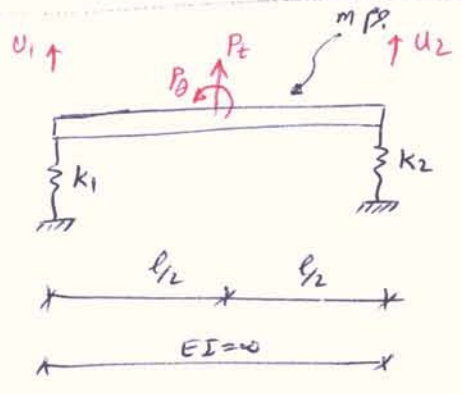 U1
Pt
Pθ
U2
K1
K2
l/2
l/2
EI=∞